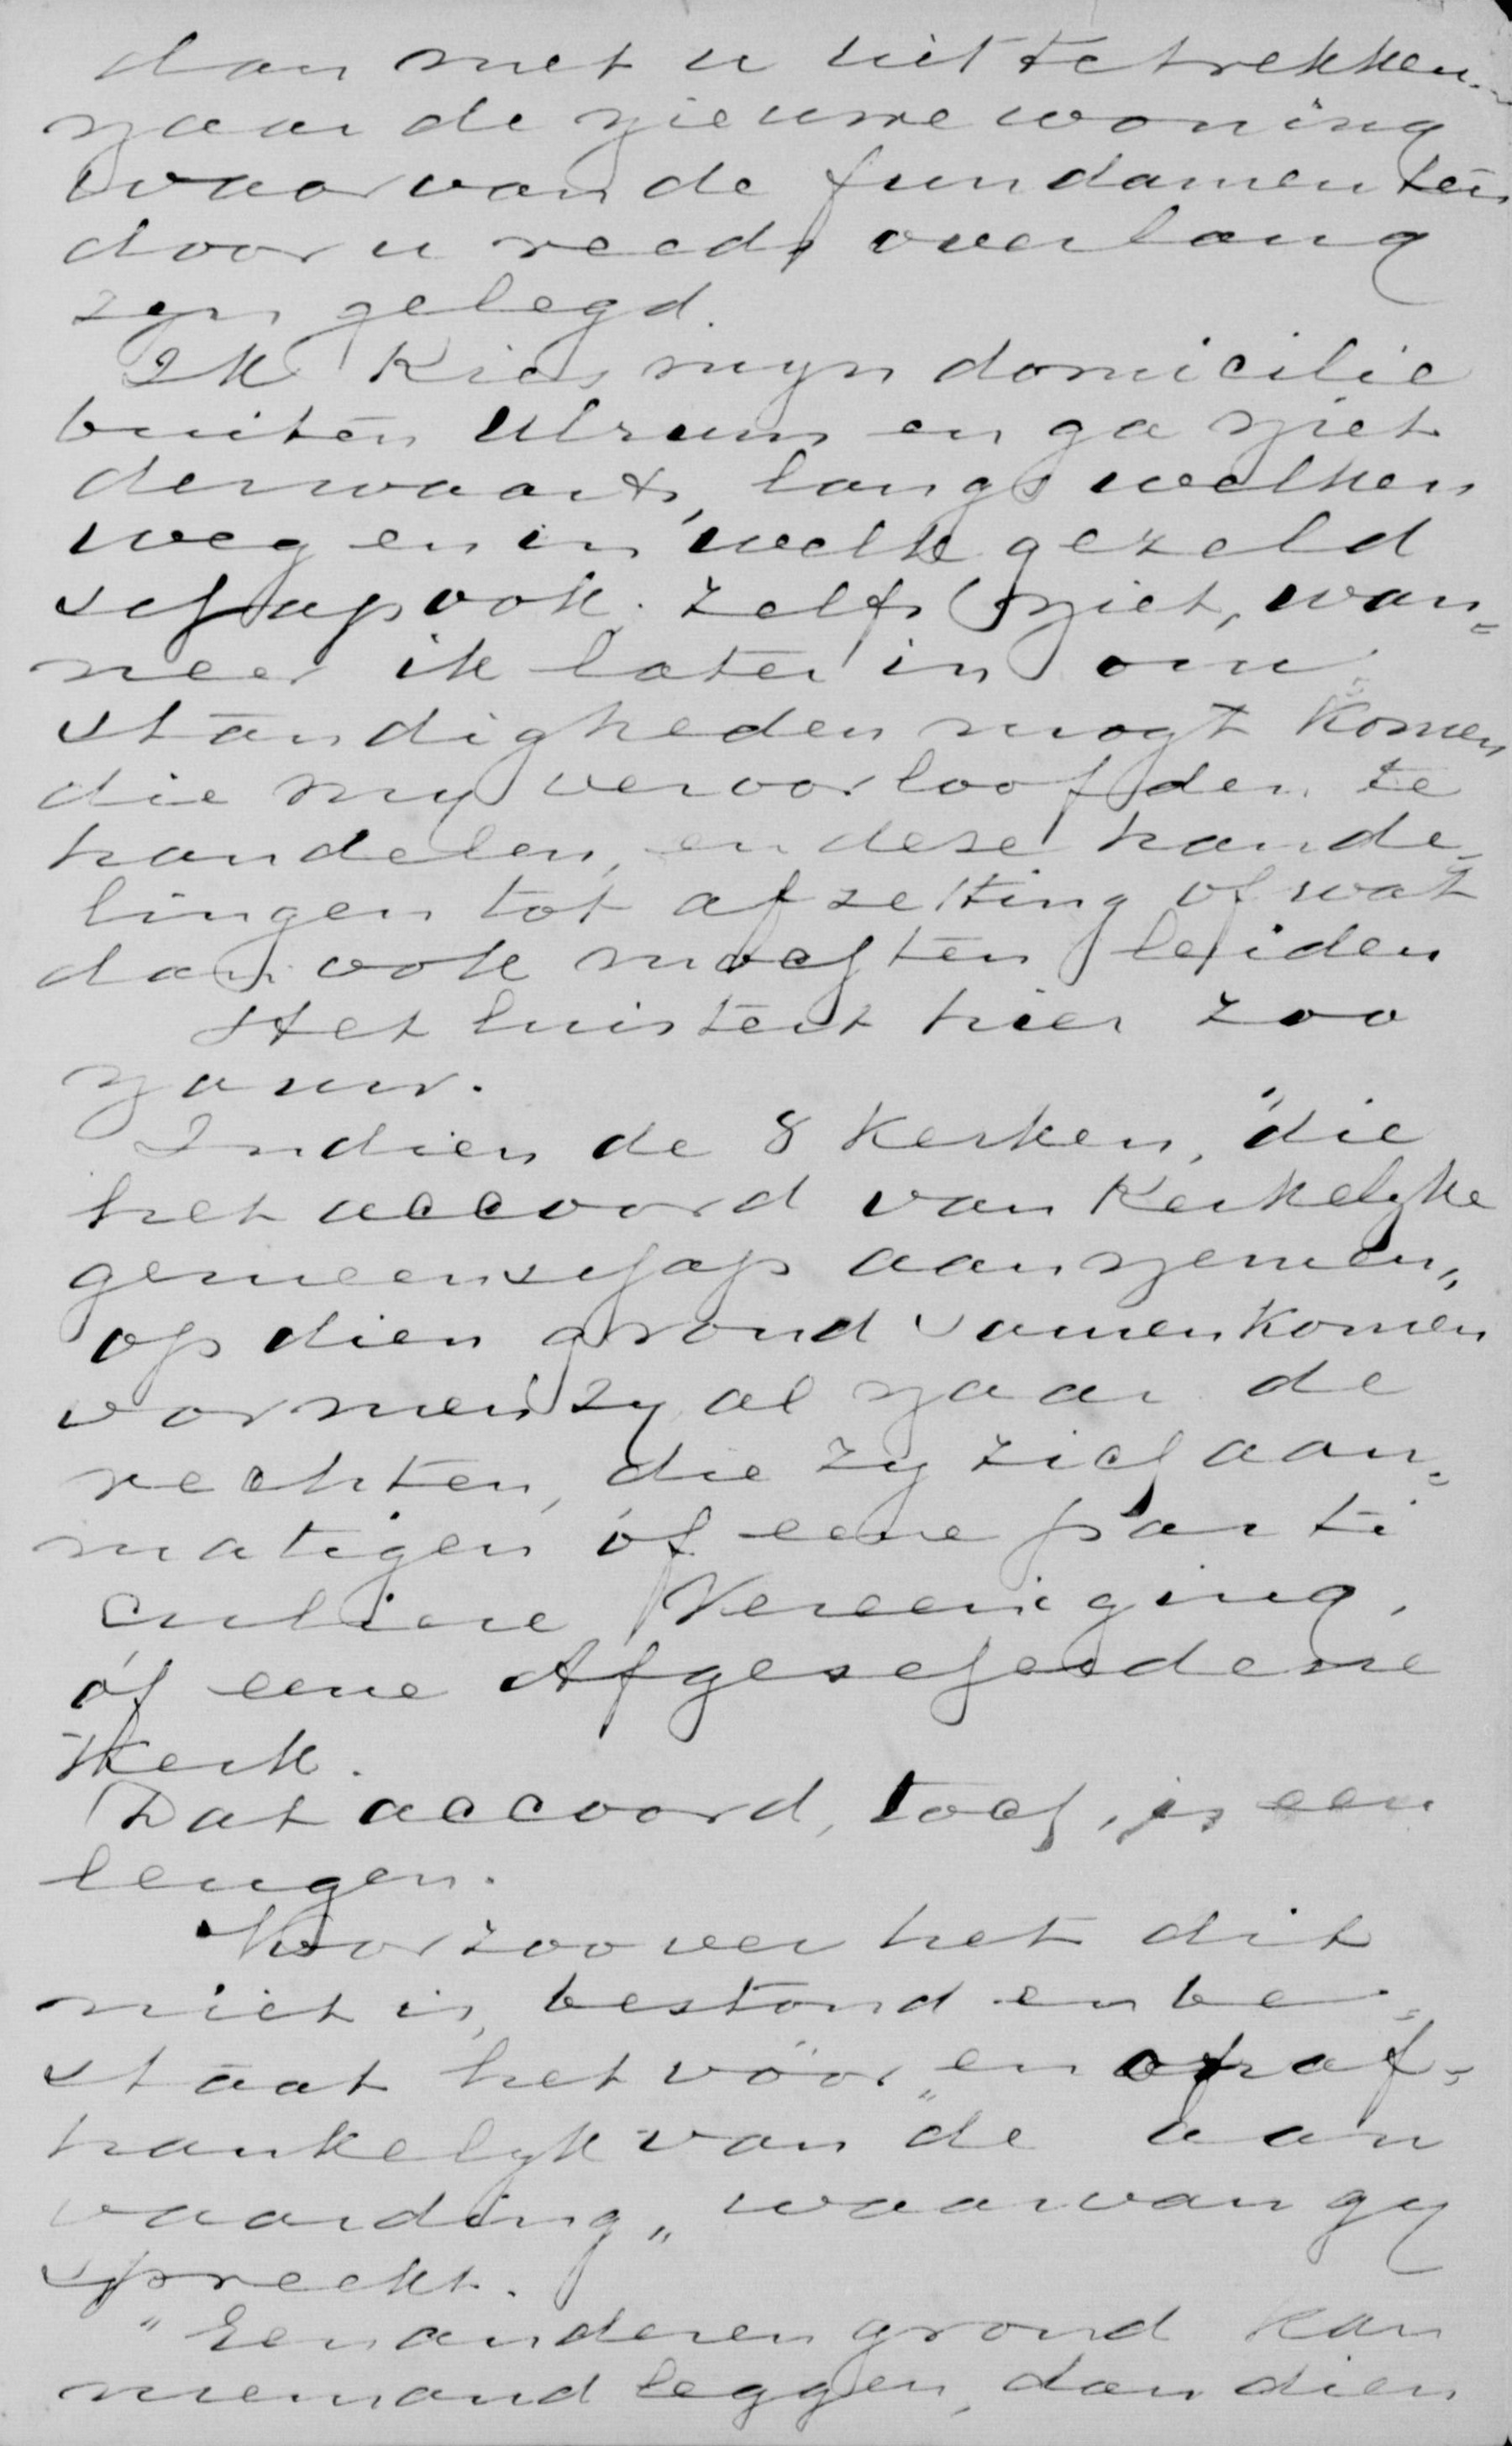 dan met u uit te trekken
naar de nieuwe woning
waarvan de fundamenten
door u reeds overlang
zyn gelegd.
Ik Kies myn domicilie
buiten Ulrum en ga niet
derwaarts, langs welken
weg en in welk gezeld
schap ook. Zelfs niet, wan=
neer ik later in om
standigheden mogt Komen
die my veroorloofden te
handelen, en deze hande=
lingen tot afzetting of wat
dan ook mochten leiden
Het luistert hier zoo
nauw.
Indien de 8 Kerken, "die
het accoord van Kerkelyke
gemeenschap aannemen"
op dien grond samenkomen
vormen zy al naar de
rechten, die zy zich aan=
matigen óf eene parti
culiere Vereeniging,
óf eene Afgescheidene
Kerk.
Dat accoord, toch, is een
leugen.
Voorzoover het dit
niet is, bestond en be=
staat het vóór en onaf=
hankelyk van "de aan
vaarding" waarvan gy
spreekt.
"Een anderen grond kan
niemand leggen, dan dien